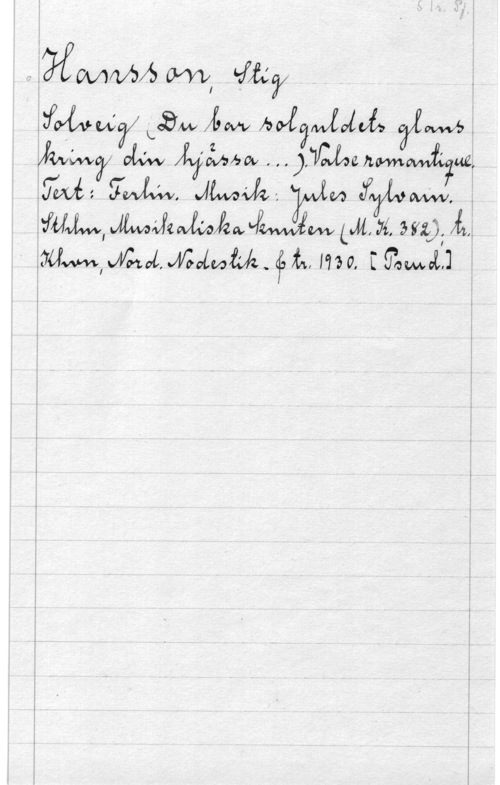 Hansson, Stig
Solveig (Du bar solguldets glans
kring din hjässa ... ). Valse romantique.
Text: Ferlin. Musik: Jules Sylvain.
Sthlm, Musikaliska knuten (M. K. 382); tr.
Khvn, Nord. Nodestik. tr. 1930. [Pseud.]